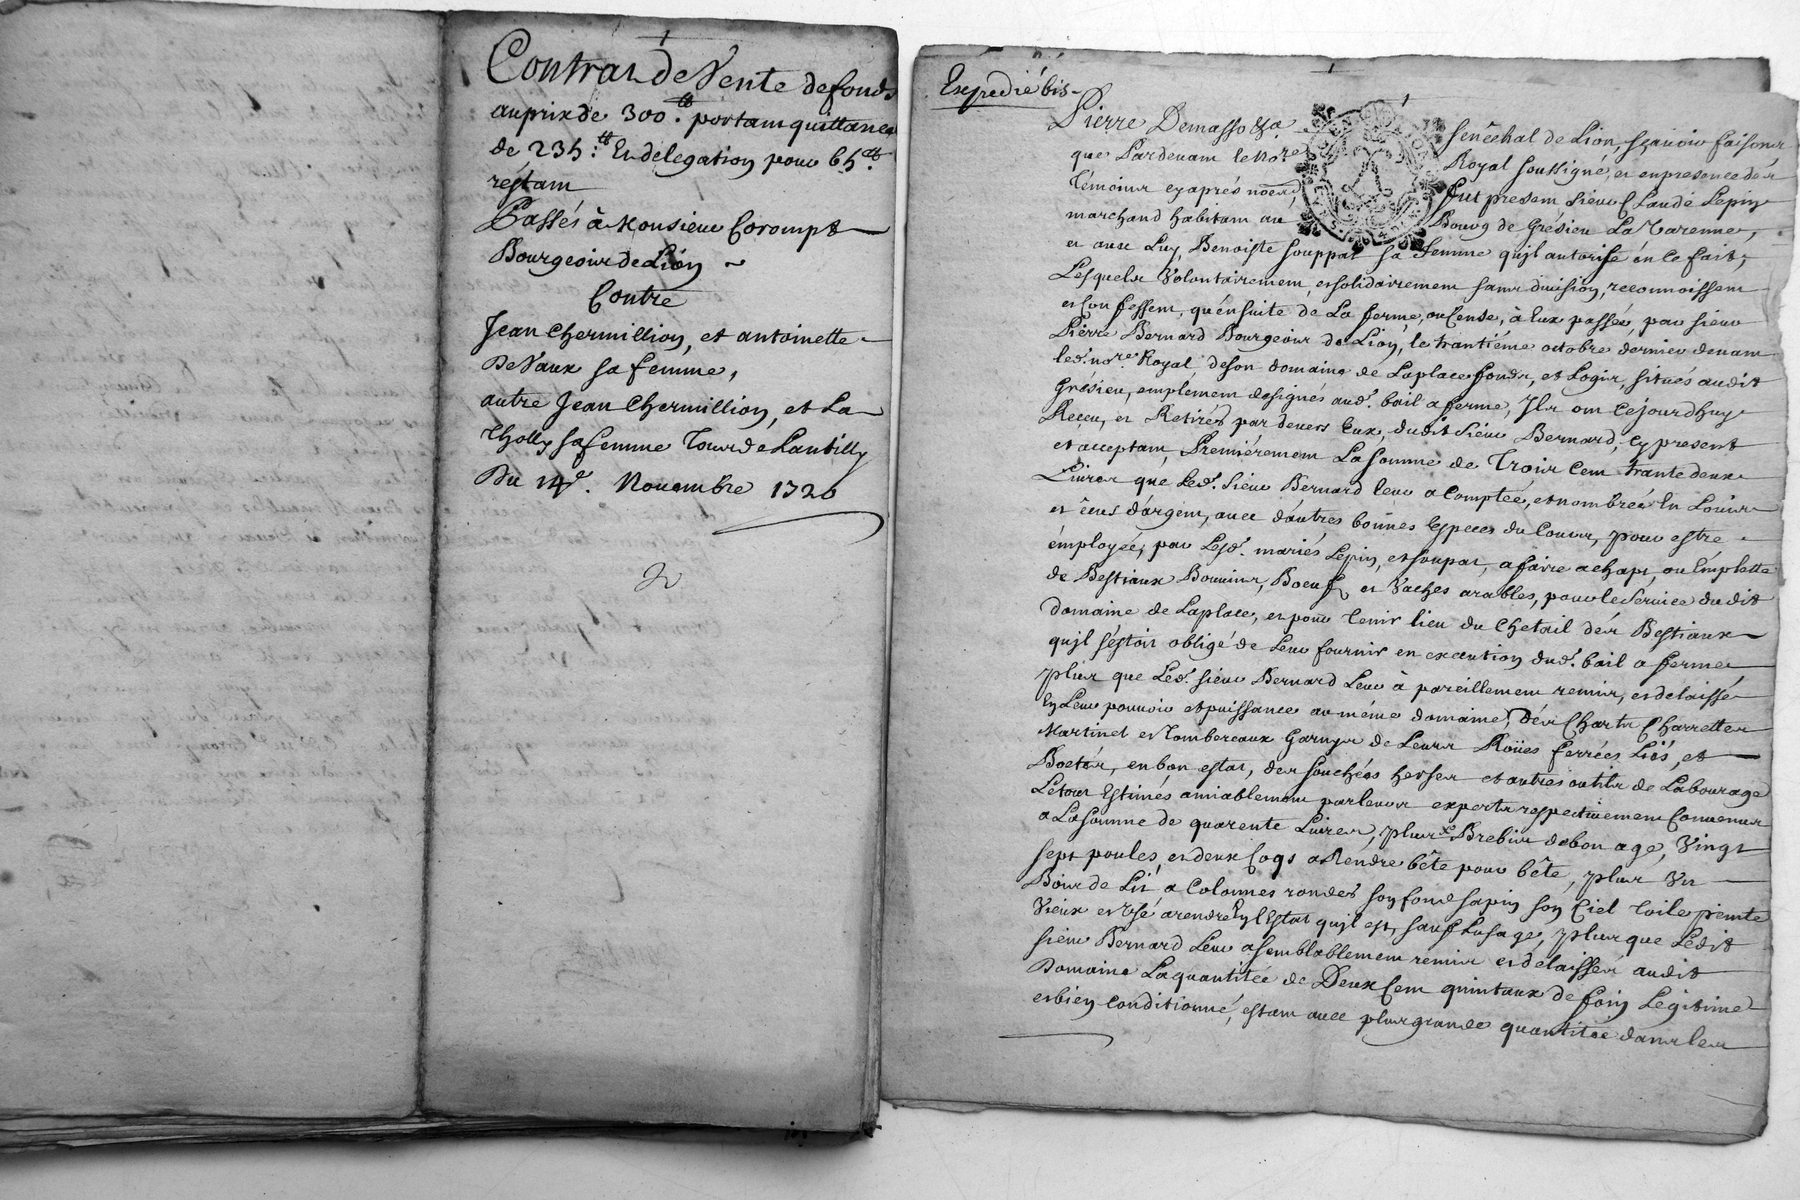 Contrat de Vente de fonds
au prix de 300.tt portant quittance
de 235:tt Et delegation pour 65tt
restant
Passés à Monsieur Corompt
Bourgeois de Lion ~
Contre
Jean Chermillion, et antoinette
DeVaux sa femme,
autre Jean Chermillion, et La
Tholly sa femme Tour de Lantilly
Du 14e. Novembre 1720
Expedié bis
Pierre Demasso &a. Senêchal de Lion, sçavoir faisons
que Pardevant le Nore. Royal soussigné, et en presence des
Témoins cy aprés noés, fut present Sieur Claude Lepin
marchand habitant au Bourg de Grésieu La Varenne,
et avec Luy, Benoiste souppat sa femme qu'jl autorise én le fait,
Lesquels Volontairement, et solidairement sans division, reconnoissent
et Confessent, qu'énsuite de La ferme, ou Cense, à Eux passée, par sieur
Pierre Bernard Bourgeois de Lion, le trantiéme octobre dernier devant
led. nore. Royal, de son domaine de Laplace fonds, et Logis, situés audit
Grésieu, emplément designés aud. bail a ferme, Jls ont Cejourdhuy
Reçeu, et Retirés par devers Eux, dudit Sieur Bernard, Cy present
et acceptant, Premiérement La somme de Trois Cent trante deux
Livres que Led. Sieur Bernard leur a Comptée, et nombrée En Loüis
et êcus d'argent, avec d'autres bonnes Especes du Cours, pour estre
émployée, par Lesd. mariés Lepin, et soupat, a faire achapt, ou Emplette
de Bestiaux Bouvins, Boeufs et Vaches arables, pour le Service dudit
domaine de Laplace, et pour tenir lieu du Chetail dés Bestiaux
qu'jl s'éstoit obligé de Leur fournir en execution dud. bail a ferme,
plus que Led. sieur Bernard Leur à pareillement remis, et delaissé
En Leur pouvoir et puissance au même domaine, Dés Chars Charrettes
Martinet et Tombereaux Garnys de Leurs Roües ferrées Liés, et
Boetés, en bon estat, des souchées herses et autres outils de Labourage
Le tout Estimés amiablement par leurs experts respectivement Convenus
a La somme de quarente Livres, plus Brebis de bon age, Vingt
sept poules, et deux Coqs a Rendre bête pour bête, plus Un
Bois de Lit a Colonnes rondes son fond sapin son Ciel toile peinte
Vieux et Usé a rendre En l'Estat qu'jl est, sauf Lusage, plus que Ledit
sieur Bernard Leur a semblablement remis et delaissés audit
Domaine La quantitée de Deux Cent quintaux de foin Legitime
et bien conditionné, estant avec plus grande quantitée dans les